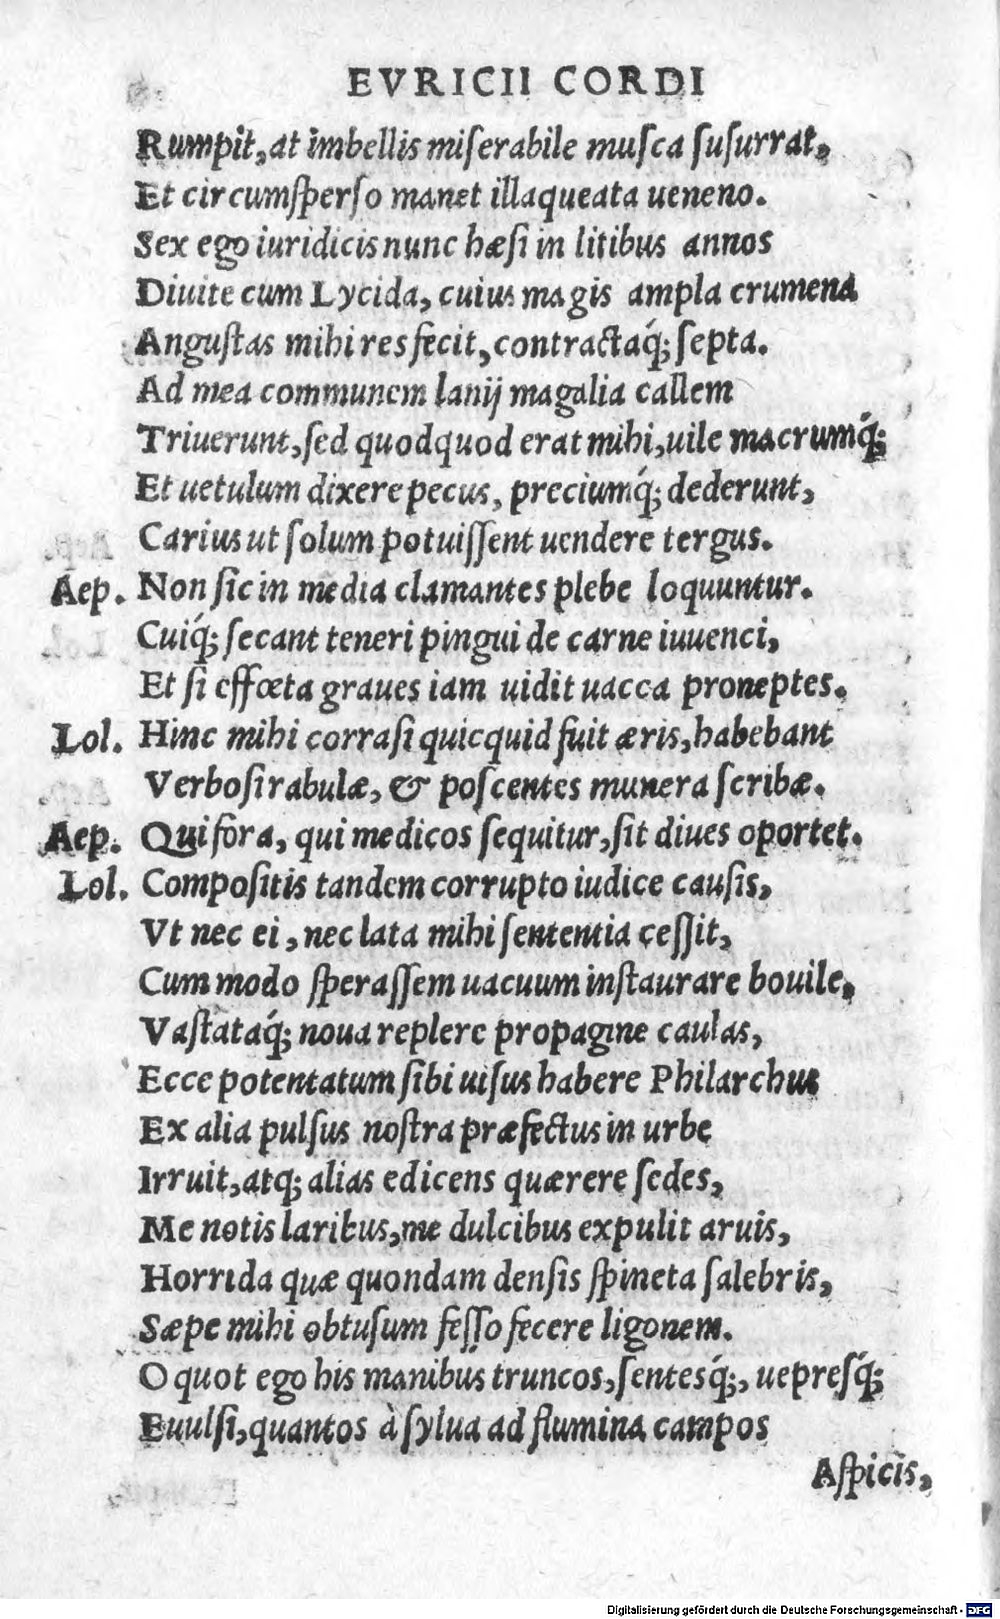 EVRICII CORDI
Rumpit, at imbellis miſerabile muſca ſuſurrat,
Et circumſperſo manet illaqueata ueneno.
Sex ego iuridicis nunc hæſi in litibus annos
Diuite cum Lycida, cuius magis ampla crumena
Anguſtas mihi res fecit, contractaq́; ſepta.
Ad mea communem lanij magalia callem
Triuerunt, ſed quodquod erat mihi, uile macrumq́;
Et uetulum dixere pecus, preciumq́; dederunt,
Carius ut ſolum potuiſſent uendere tergus.
Aep. Non ſic in media clamantes plebe loquuntur.
Cuiq́; ſecant teneri pingui de carne iuuenci,
Et ſi effœta graues iam uidit uacca proneptes.
Lol. Hinc mihi corraſi quicquid fuit æris, habebant
Verboſi rabulæ, & poſcentes munera ſcribæ.
Aep. Qui fora, qui medicos ſequitur, ſit diues oportet.
Lol. Compoſitis tandem corrupto iudice cauſis,
Vt nec ei, nec lata mihi ſententia ceſſit,
Cum modo ſperaſſem uacuum inſtaurare bouile,
Vaſtataq́; noua replere propagine caulas,
Ecce potentatum ſibi uiſus habere Philarchus
Ex alia pulſus noſtra præfectus in urbe
Irruit, atq; alias edicens quærere ſedes,
Me notis laribus, me dulcibus expulit aruis,
Horrida quæ quondam denſis ſpineta ſalebris,
Sæpe mihi obtuſum feſſo fecere ligonem.
O quot ego his manibus truncos, ſentesq́;, uepreſq́;
Euulſi, quantos à ſylua ad flumina campos
Aſpicis,
Digitalisierung gefördert durch die Deutsche Forschungsgemeinschaft - DFG